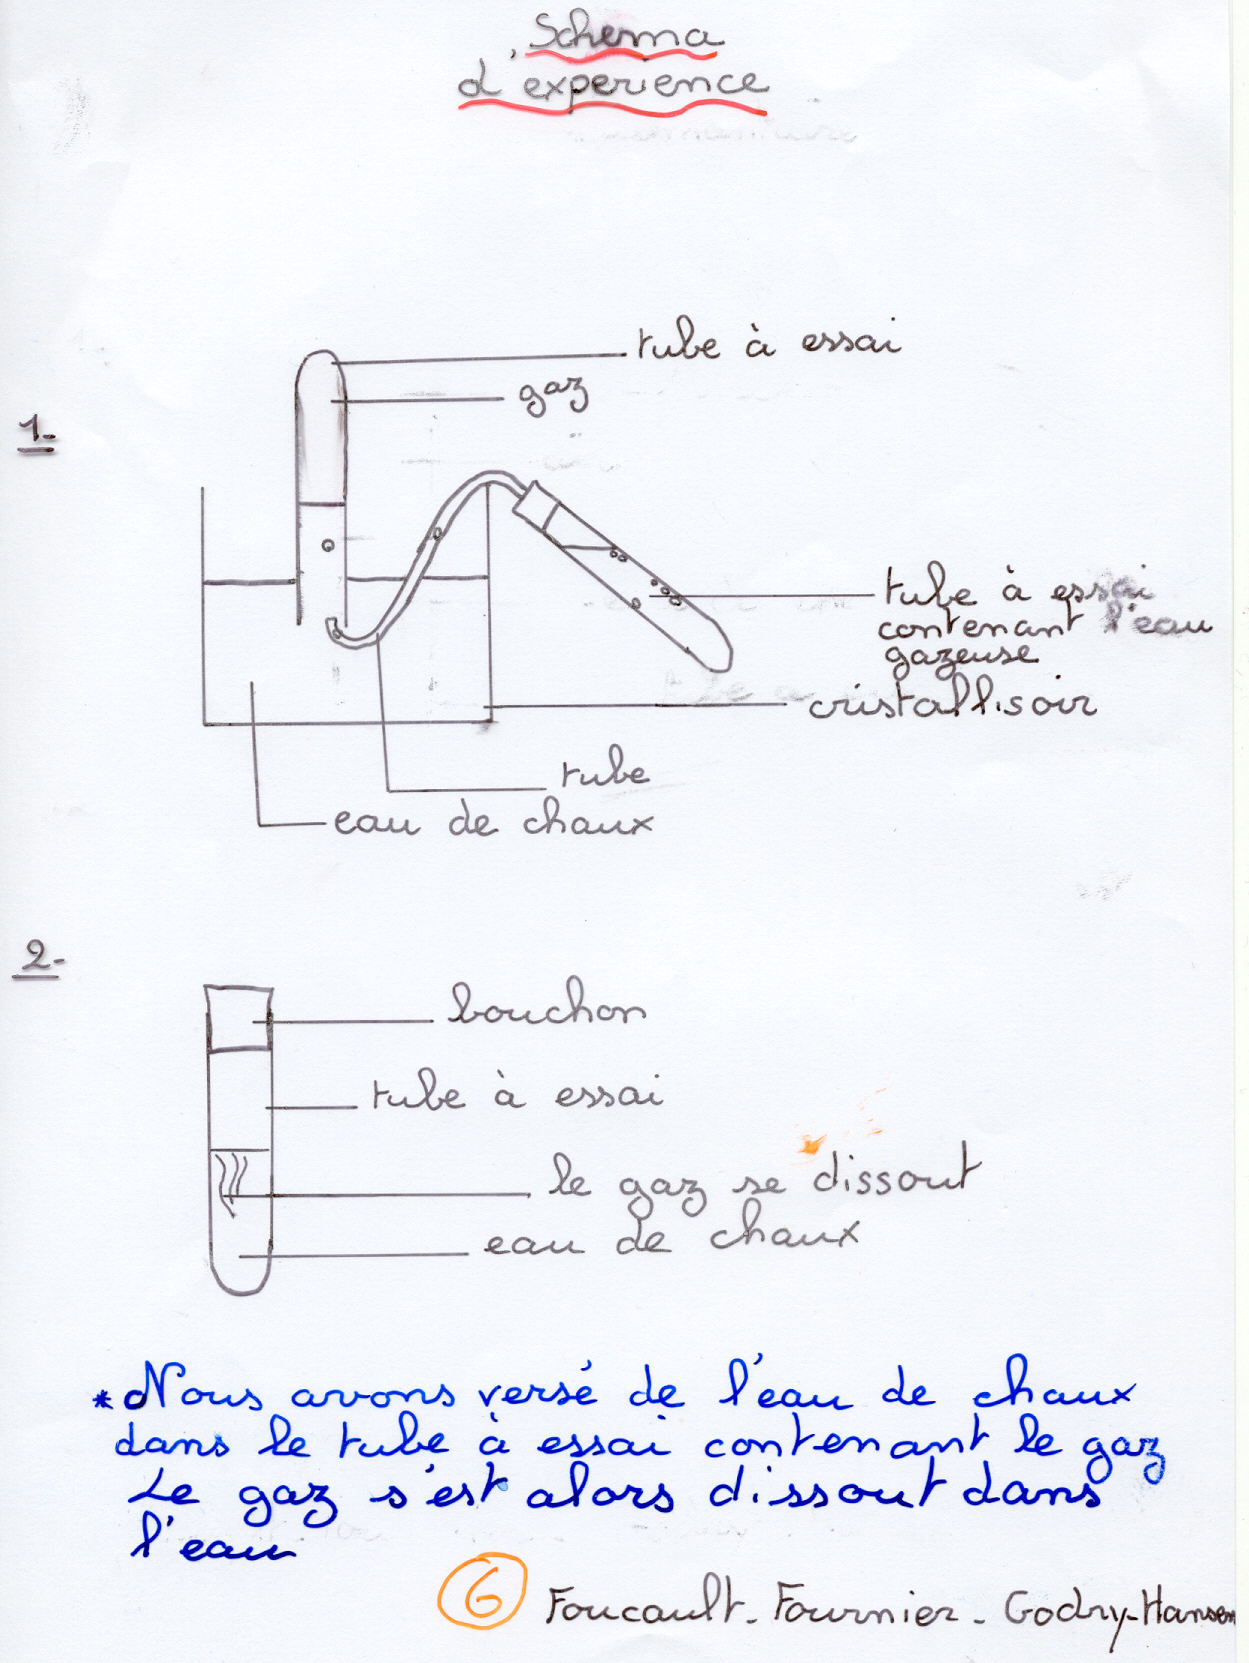 Schema
d'experience
1-
tube à essai
gaz
tube à essai
contenant l'eau
gazeuse
cristallisoir
tube
eau de chaux
2-
bouchon
tube à essai
le gaz se dissout
eau de chaux
* Nous avons versé de l'eau de chaux
dans le tube à essai contenant le gaz
Le gaz s'est alors dissout dans
l'eau
6 Foucault - Fournier - Godry-Hansen